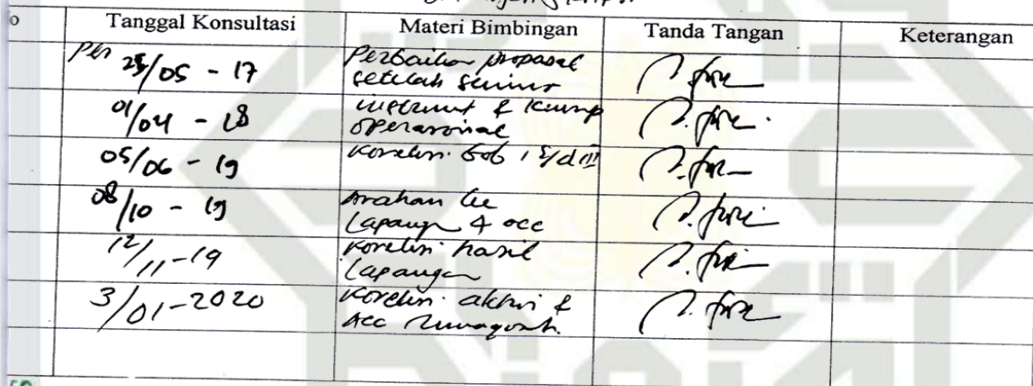 o Tanggal Konsultasi Materi Bimbingan Tanda Tangan Keterangan
Per 25/05 - 17 Perbaikan proposal
setelah seminar
01/04 - 18 instrument & konsep
operasional
05/06 - 19 Koreksi Bab I s/d III
08/10 - 19 Arahan ke
Lapangan & acc
12/11-19 Koreksi hasil
Lapangan
3/01-2020 Koreksi akhir &
Acc